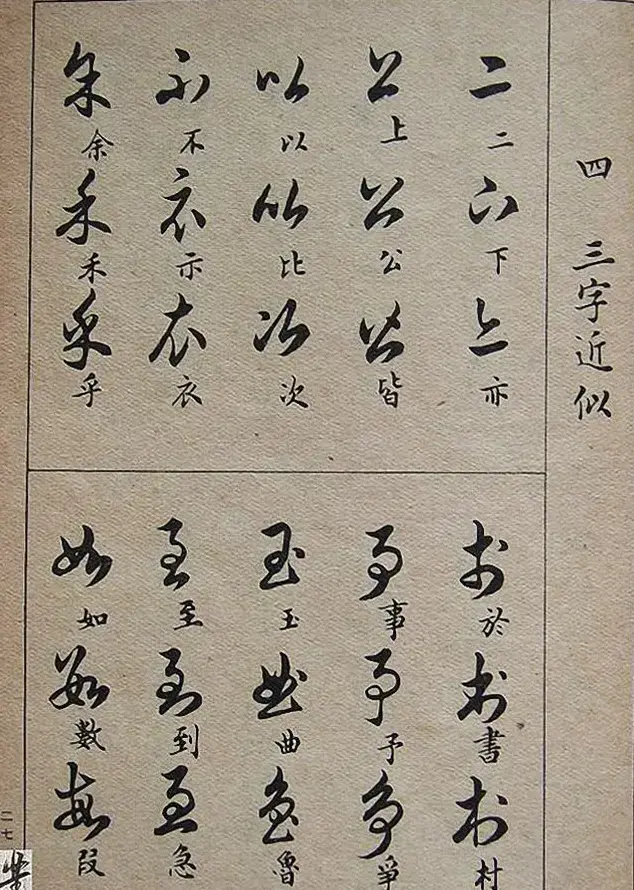 四 三字近似
二二下下亦亦
上上公公皆皆
以以比比次次
不不示示衣衣
余余禾禾乎乎
於於書書村村
事事予予爭爭
玉玉曲曲魯魯
至至到到急急
如如數數
二七